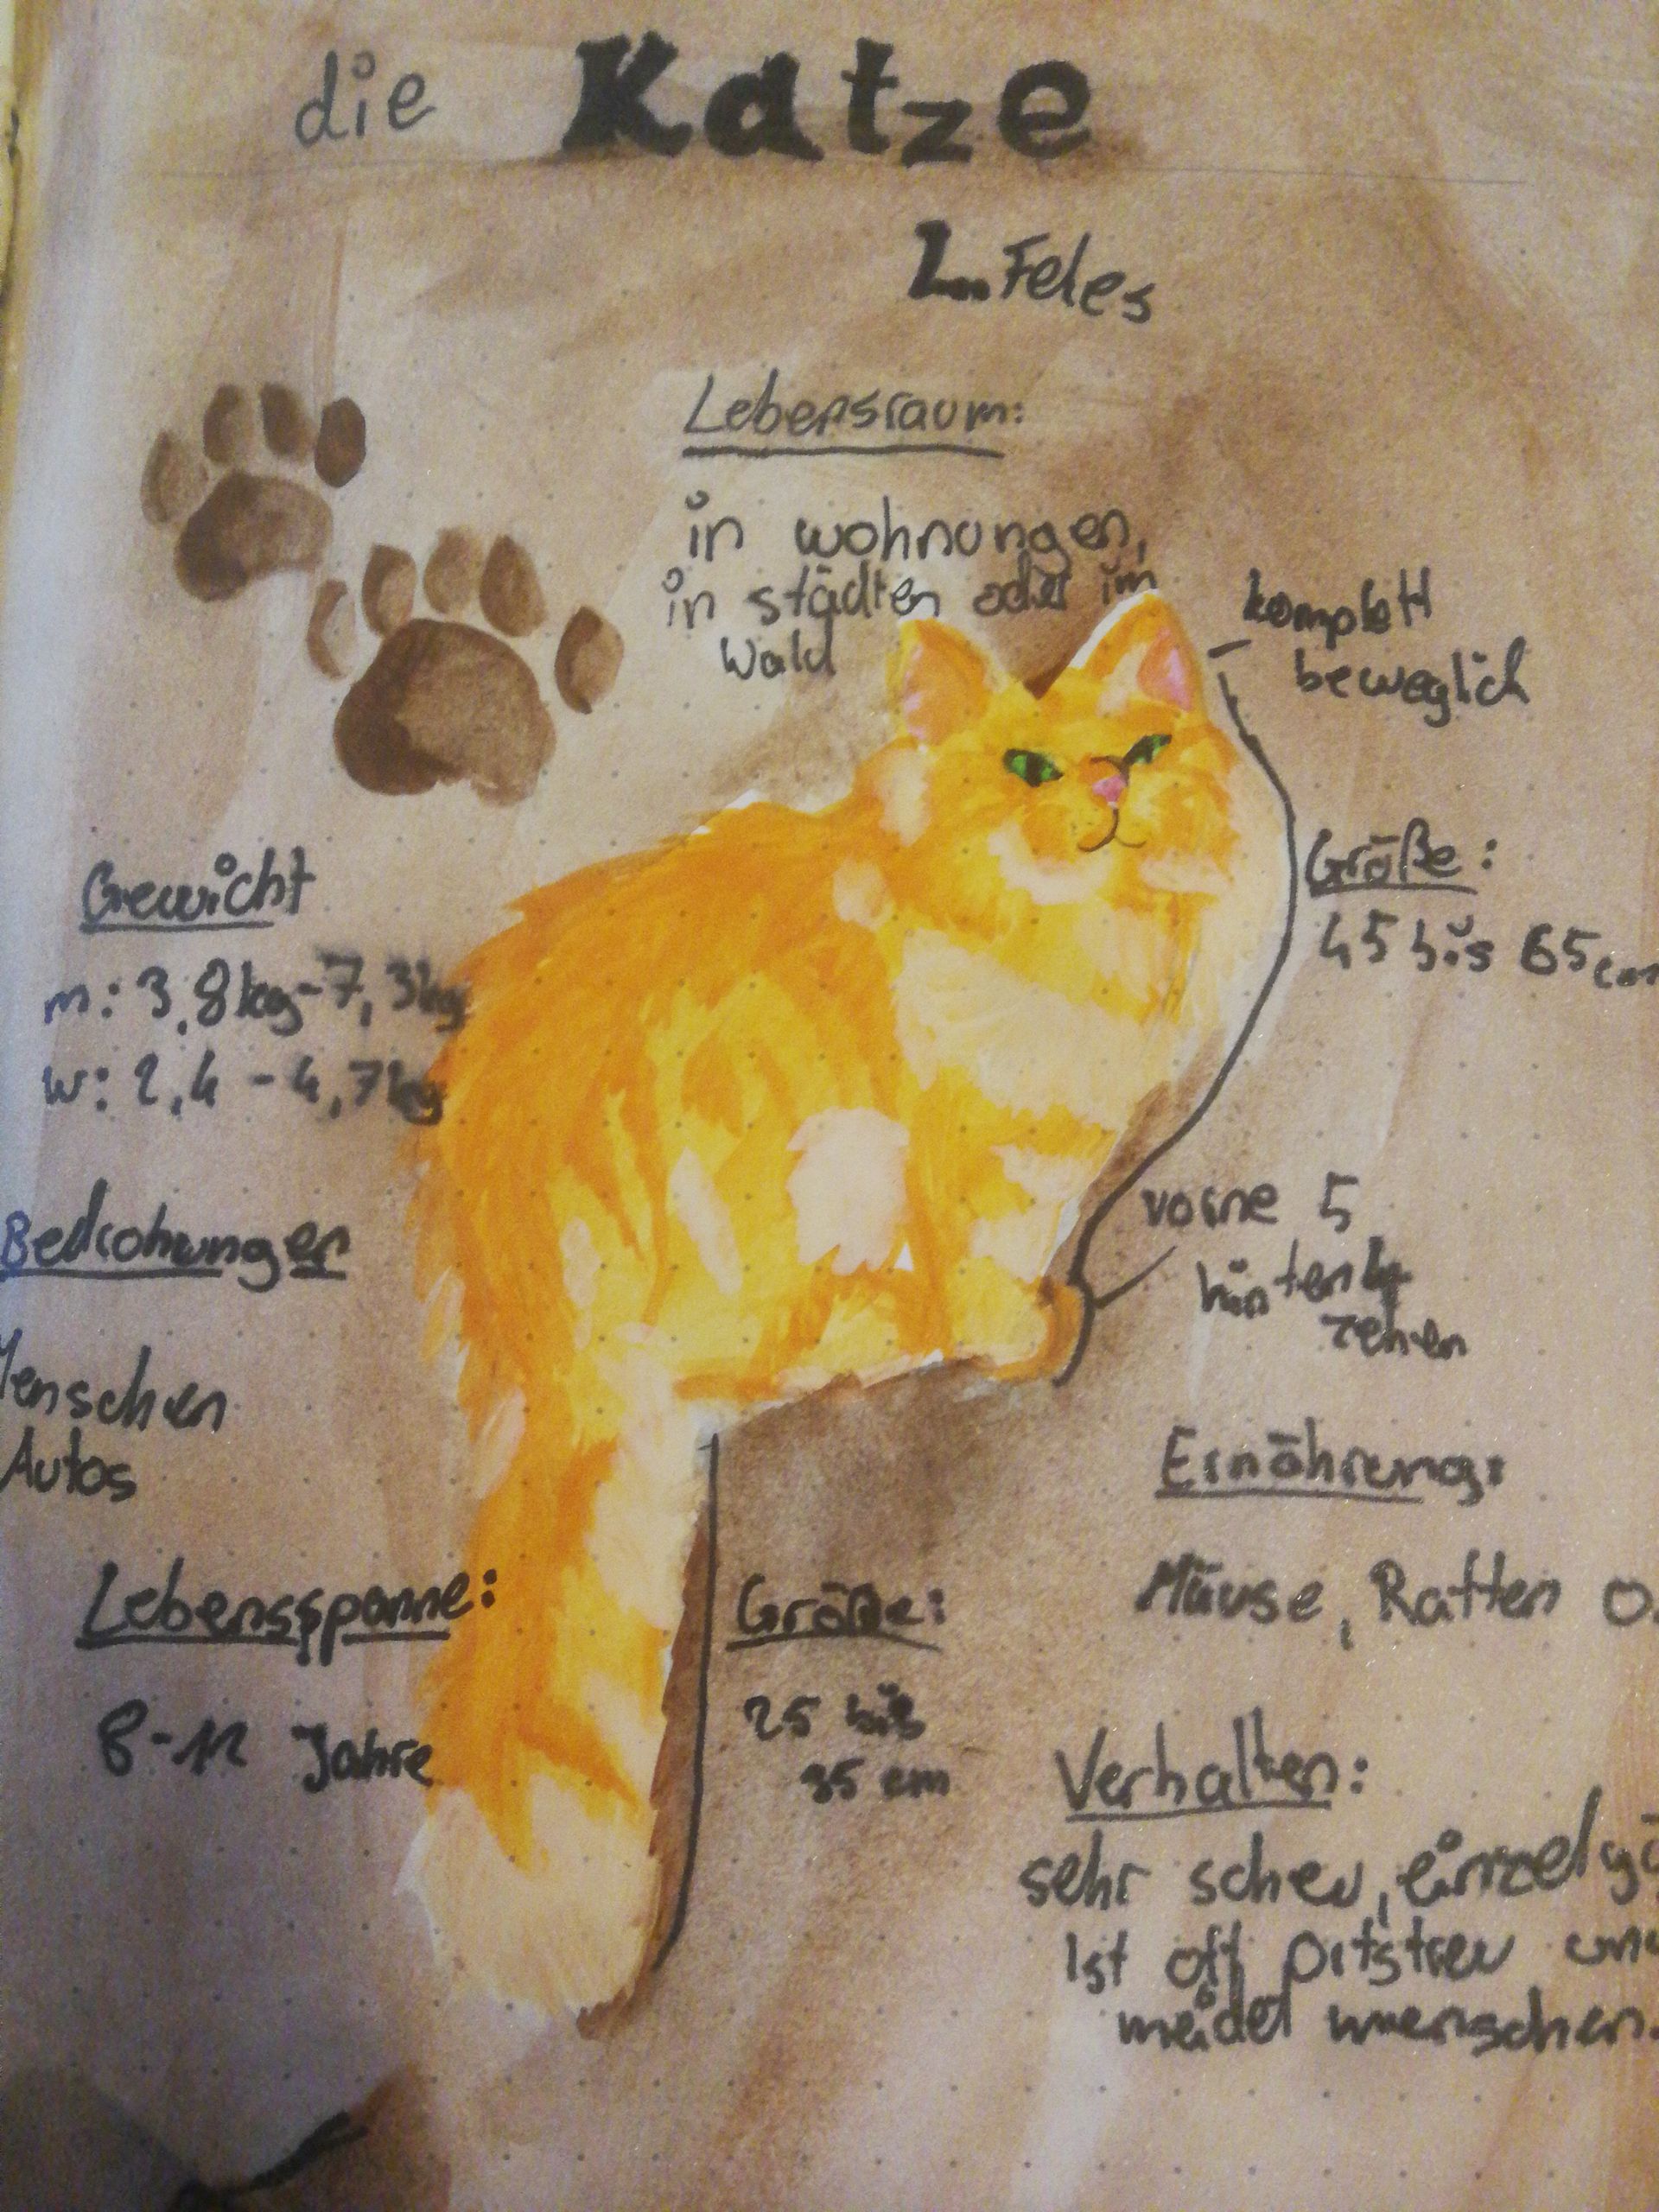 die Katze
L. Feles
Lebensraum:
in wohnungen,
in städten oder im
Wald
komplett
beweglich
Gewicht
m: 3,8kg-7,3kg
w: 2,4 - 4,7kg
Größe:
45 bis 65cm
Bedrohungen
Menschen
Autos
vorne 5
hinten 4
zehen
Ernährung:
Mäuse, Ratten o.
Lebensspanne:
8-12 Jahre
Größe:
25 bis
35 cm
Verhalten:
sehr scheu, einzelgä
Ist oft ortstreu und
meidet menschen.